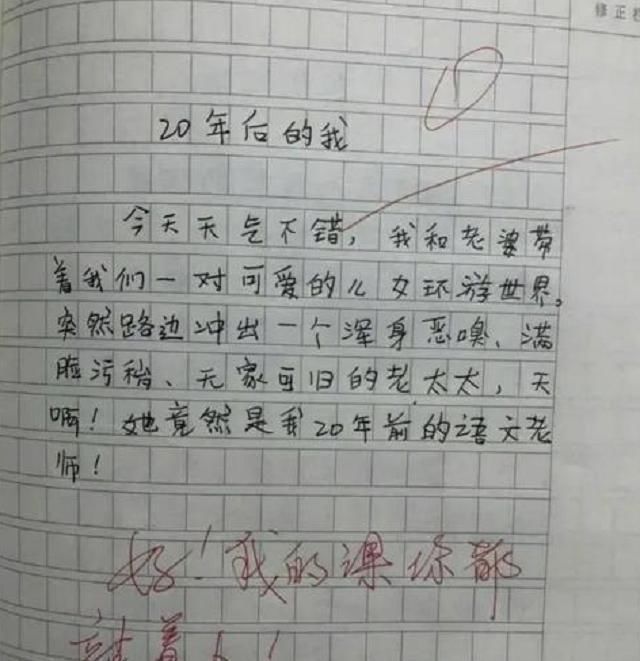 修正
20年后的我
今天天气不错，我和老婆带
着我们一对可爱的儿女环游世界。
突然路边冲出一个浑身恶嗅、满
脸污秽、无家可旧的老太太，天
啊！她竟然是我20年前的语文老
师！
好！我的课你都
站着上！